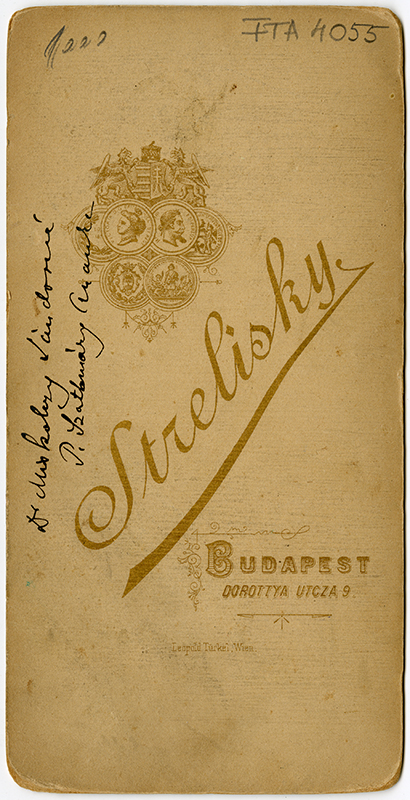 FTA 4055
Dr Miskolczy Sándorné
P. Szathmáry
Strelisky.
BUDAPEST
DOROTTYA UTCZA 9.
Leopold Türkel, Wien